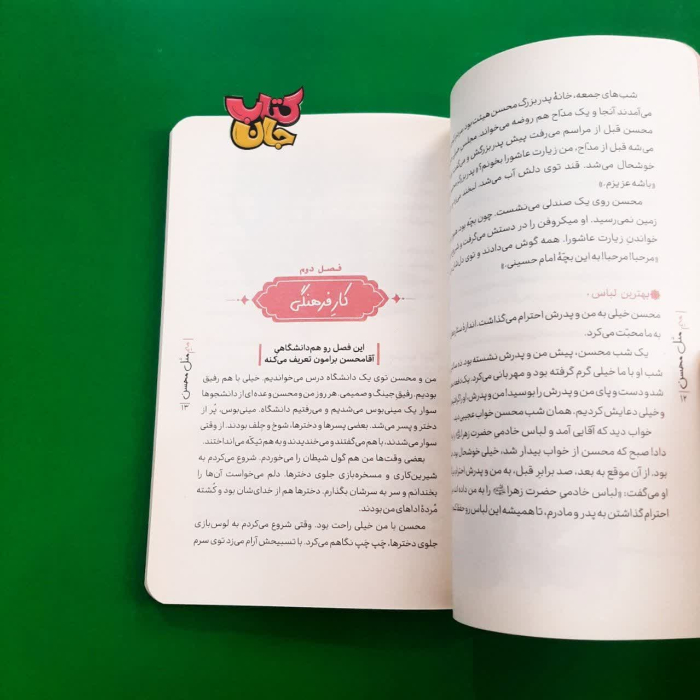 کتاب
جان
شب‌های جمعه، خانهٔ پدربزرگ محسن هیئت بود.
می‌آمدند آنجا و یک مدّاح هم روضه می‌خواند. مجلس
محسن قبل از مراسم می‌رفت پیش پدربزرگش و
می‌شه قبل از مدّاح، من زیارت عاشورا بخونم؟» پدربزرگ
خوشحال می‌شد. قند توی دلش آب می‌شد. لبخند
«باشه عزیزم.»
محسن روی یک صندلی می‌نشست. چون بچّه بود،
زمین نمی‌رسید. او میکروفن را در دستش می‌گرفت و
خواندنِ زیارت عاشورا. همه گوش می‌دادند و توی
«مرحبا! مرحبا! به این بچّهٔ امام حسینی.»
بهترین لباس
محسن خیلی به من و پدرش احترام می‌گذاشت. اندازهٔ
به ما محبّت می‌کرد.
یک شب محسن، پیش من و پدرش نشسته بود.
شب او با ما خیلی گرم گرفته بود و مهربانی می‌کرد. یک
شد و دست و پای من و پدرش را بوسید! من و پدرش، او را
و خیلی دعایش کردیم. همان شب محسن خواب عجیبی
خواب دید که آقایی آمد و لباس خادمی حضرت زهرا
داد! صبح که محسن از خواب بیدار شد، خیلی خوشحال بود.
بود. از آن موقع به بعد، صد برابرِ قبل، به من و پدرش احترام
او می‌گفت: «لباس خادمی حضرت زهرا را به من داده‌اند
احترام گذاشتن به پدر و مادرم، تا همیشه این لباس رو حفظ
مثل محسن
فصل دوم
کار فرهنگی
این فصل رو هم‌دانشگاهیِ
آقامحسن برامون تعریف می‌کنه
من و محسن توی یک دانشگاه درس می‌خواندیم. خیلی با هم رفیق
بودیم. رفیق جینگ و صمیمی. هر روز من و محسن و عده‌ای از دانشجوها
سوار یک مینی‌بوس می‌شدیم و می‌رفتیم دانشگاه. مینی‌بوس، پُر از
دختر و پسر می‌شد. بعضی پسرها و دخترها، شوخ و جلف بودند. از وقتی
سوار می‌شدند، با هم می‌گفتند و می‌خندیدند و به هم تیکّه می‌انداختند.
بعضی وقت‌ها من هم گول شیطان را می‌خوردم. شروع می‌کردم به
شیرین‌کاری و مسخره‌بازی جلوی دخترها. دلم می‌خواست آن‌ها را
بخندانم و سر به سرشان بگذارم. دخترها هم از خدای‌شان بود و کُشته
مُردهٔ اداهای من بودند.
محسن با من خیلی راحت بود. وقتی شروع می‌کردم به لوس‌بازی
جلوی دخترها، چَپ چَپ نگاهم می‌کرد. با تسبیحش آرام می‌زد توی سرم
مثل محسن